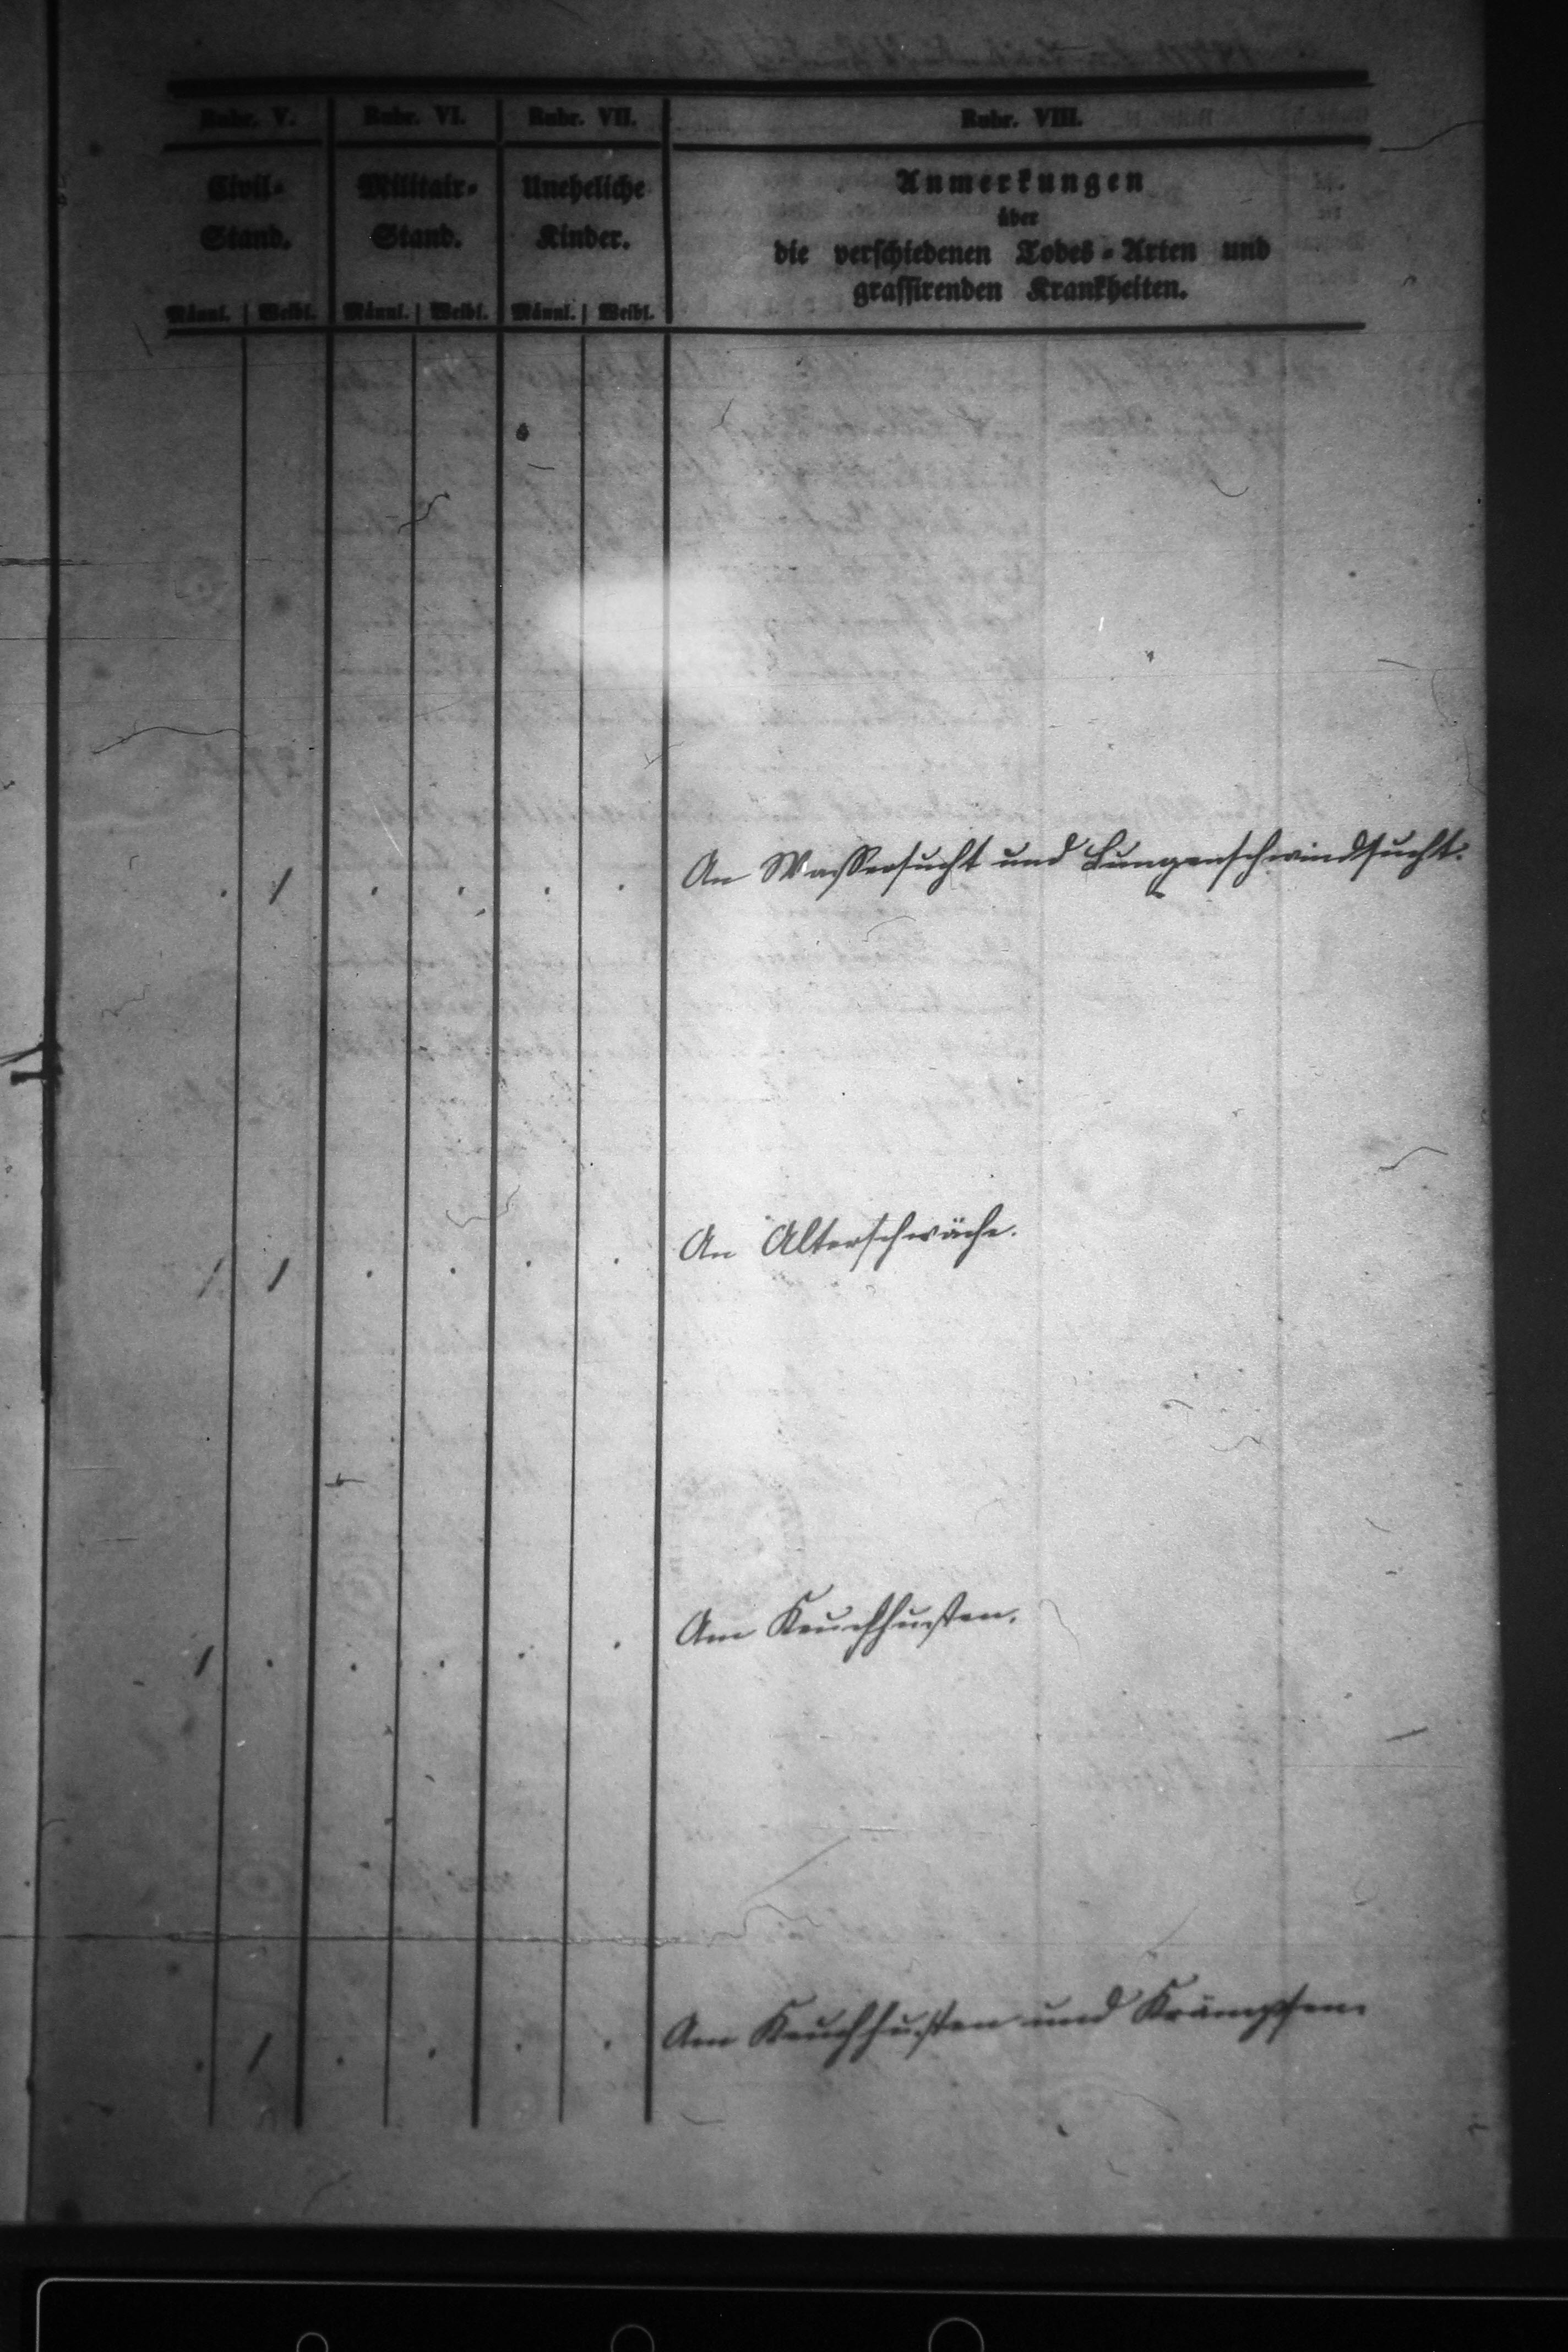 Rubr. V. Rubr. VI. Rubr. VII. Rubr. VIII.
Civil- Militair- Uneheliche Anmerkungen
Stand. Stand. Kinder. über
die verschiedenen Todes-Arten und
grassirenden Krankheiten.
Männl. Weibl. Männl. Weibl. Männl. Weibl.
. 1 . . . . An Wassersucht und Lungenschwindsucht.
1 1 . . . . An Alterschwäche.
1 . . . . . Am Keuchhusten.
. 1 . . . . Am Keuchhusten und Krämpfen.